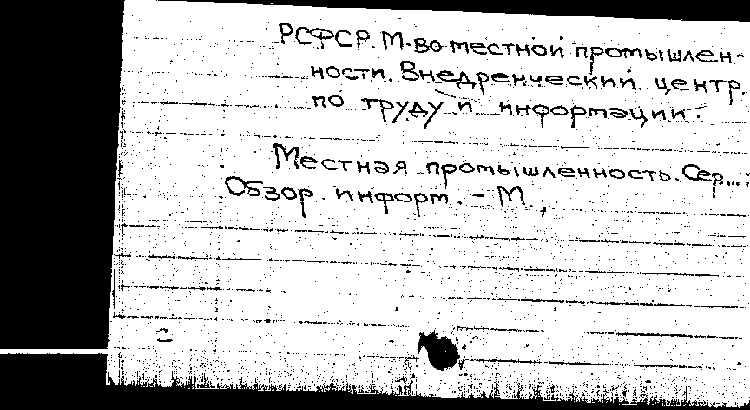 РСФСР. М-во местной промышлен-
ности. Внедренческий центр.
по труду и информации.
Местная промышленность. Сер...:
Обзор. информ. - М.,